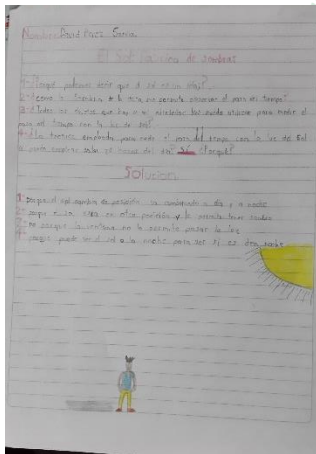 Nombre: David Perez Sarria
El sol reloj de sombras
1- ¿Porqué podemos decir que el sol es un reloj?
2- ¿como la sombra de la casa me permite observar el paso del tiempo?
3- ¿Todos los objetos que hay a mi alrededor los puedo utilizar para medir el
paso del tiempo con la luz de sol?
4- ¿La tecnica empleada para medir el paso del tiempo con la luz de sol
se puede emplear todas las horas del dia? Sí. ¿Porqué?
Solución
1- porque el sol cambia de posición va cambiando a día y a noche
2- porque el sol está en otra posición y le permite tener sombra
3- no porque la ventana no le permite pasar la luz
4- porque puede ver el sol o la noche para ver si es dia, noche